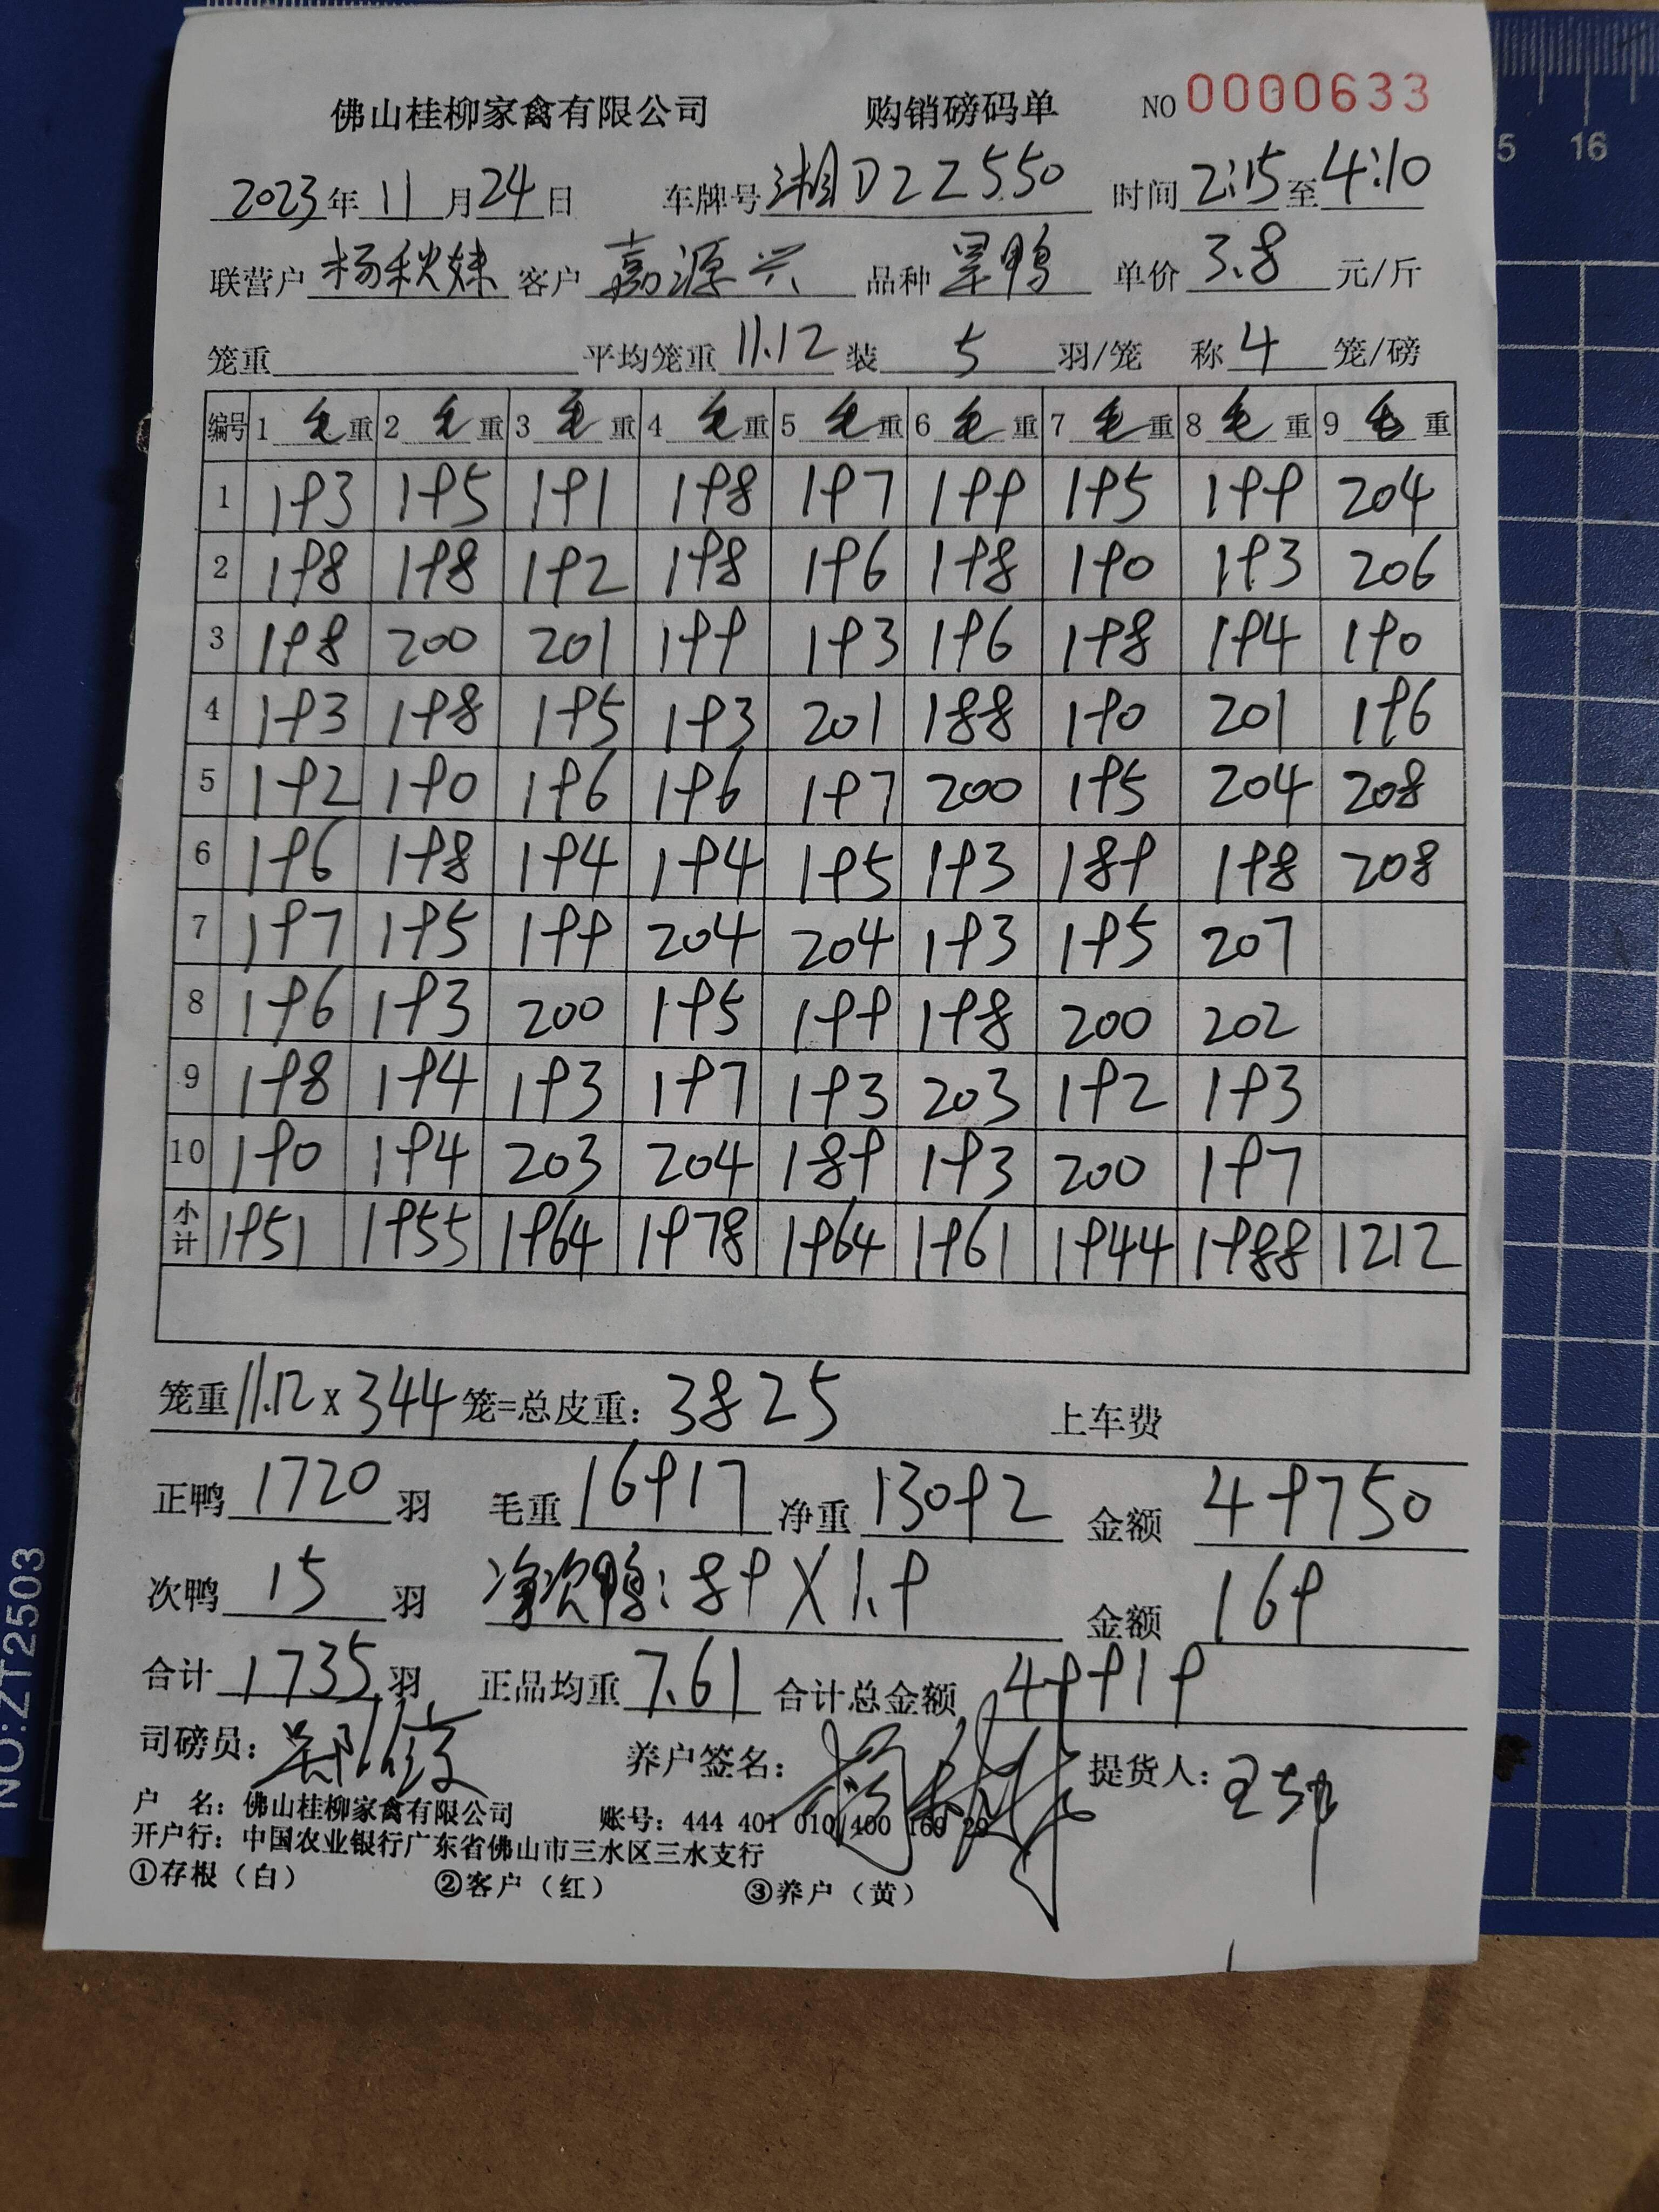 佛山桂柳家禽有限公司 购销磅码单 NO 0000633
2023年 11月24日 车牌号 湘DZZ550 时间 2:15 至 4:10
联营户 杨秋妹 客户 嘉源兴 品种 旱鸭 单价 3.8 元/斤
笼重 平均笼重 11.12 装 5 羽/笼 称 4 笼/磅
编号 1 毛重 2 毛重 3 毛重 4 毛重 5 毛重 6 毛重 7 毛重 8 毛重 9 毛重
1 193 195 191 198 197 199 195 199 204
2 198 198 192 198 196 198 190 193 206
3 198 200 201 199 193 196 198 194 190
4 193 198 195 193 201 188 190 201 196
5 192 190 196 196 197 200 195 204 208
6 196 198 194 194 195 193 189 198 208
7 197 195 199 204 204 193 195 207
8 196 193 200 195 199 198 200 202
9 198 194 193 197 193 203 192 193
10 190 194 203 204 189 193 200 197
小计 1951 1955 1964 1978 1964 1961 1944 1988 1212
笼重 11.12 x 344 笼=总皮重: 3825 上车费
正鸭 1720 羽 毛重 16917 净重 13092 金额 49750
次鸭 15 羽 净次鸭: 89 X 1.9 金额 169
合计 1735 羽 正品均重 7.61 合计总金额 49919
司磅员: 养户签名: 提货人:
户 名: 佛山桂柳家禽有限公司 账号: 444 401 010 400 160 20
开户行: 中国农业银行广东省佛山市三水区三水支行
①存根（白） ②客户（红） ③养户（黄）
NO:ZT2503
5 16